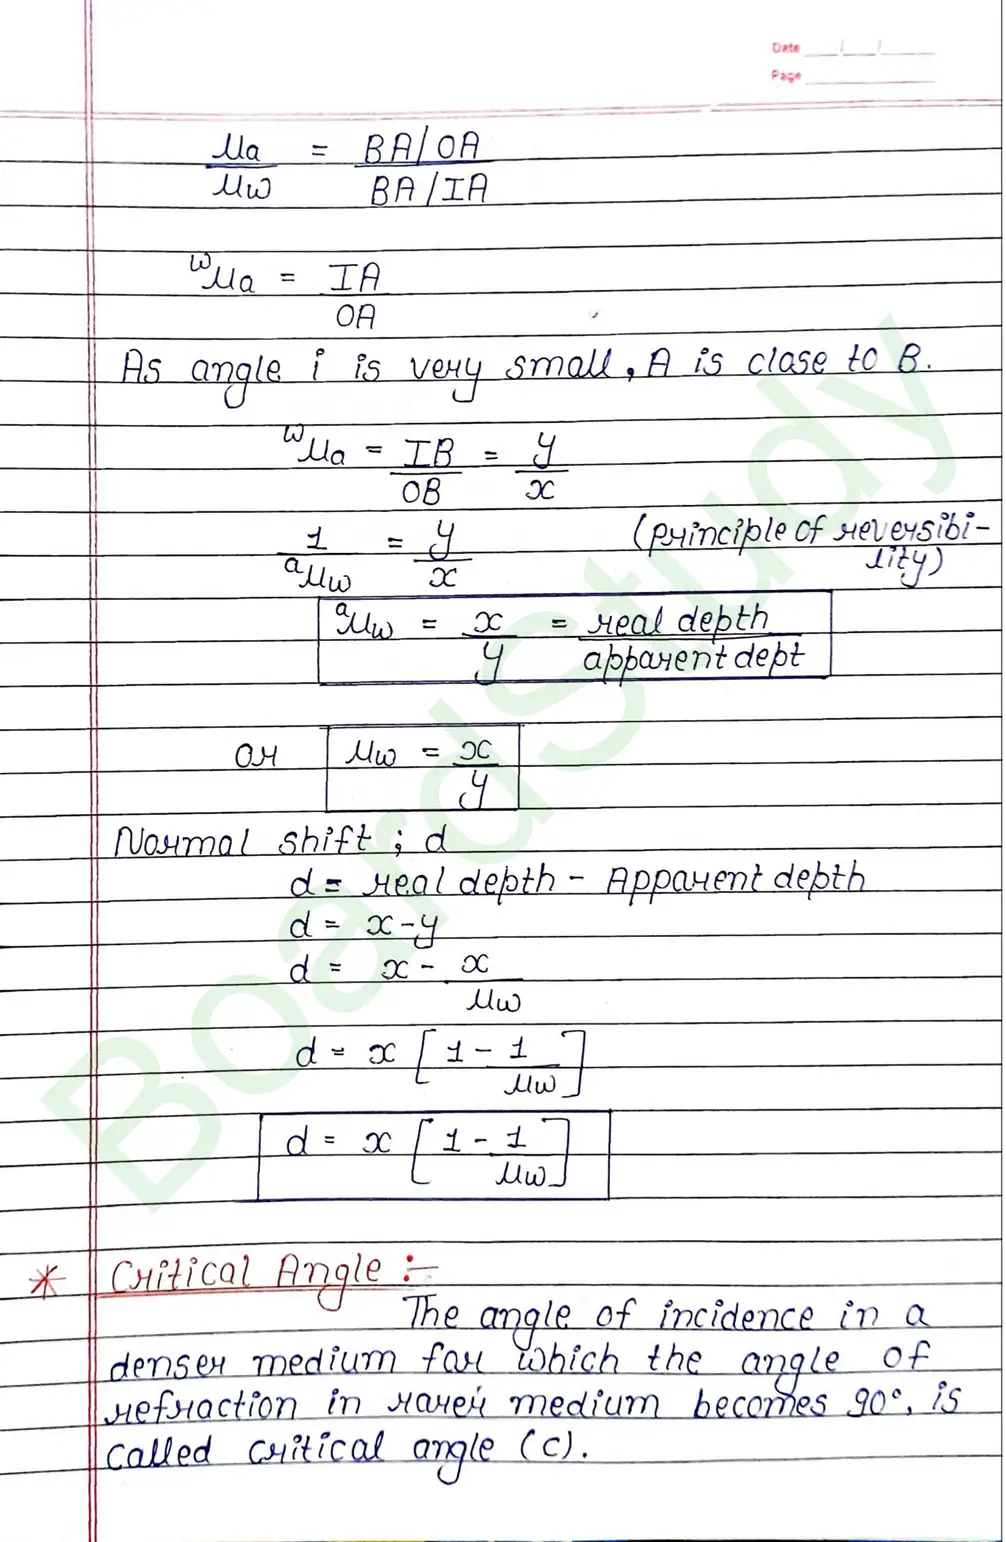 Date ___/___/___
Page ___
μa/μw = BA/OA / BA/IA
ʷμa = IA/OA
As angle i is very small, A is clase to B.
ʷμa = IB/OB = y/x
1/ᵃμw = y/x (principle of reversibi-
lity)
ᵃμw = x/y = real depth/apparent dept
or μw = x/y
Normal shift ; d
d = real depth - Apparent depth
d = x - y
d = x - x/μw
d = x [1 - 1/μw]
d = x [1 - 1/μw]
* Critical Angle :-
The angle of incidence in a
denser medium for which the angle of
refraction in rarer medium becomes 90°, is
called critical angle (c).
BoardStudy